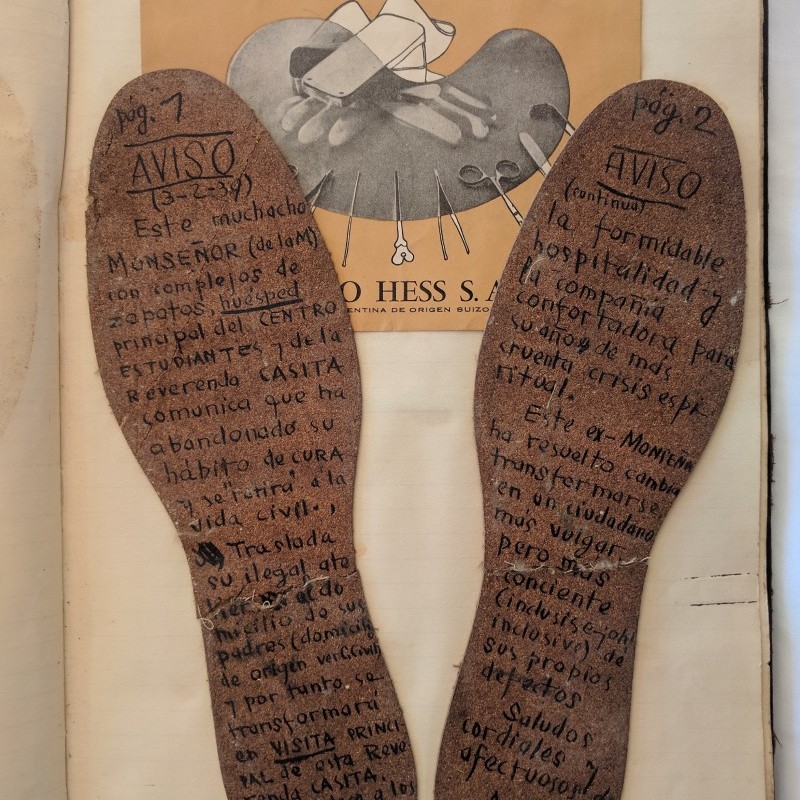 pág. 1
AVISO
(3-2-39)
Este muchacho
MONSEÑOR (de la M)
con complejos de
zapatos, huésped
principal del CENTRO
ESTUDIANTES y de la
Reverenda CASITA
comunica que ha
abandonado su
hábito de CURA
y se "retira" a la
vida civil.,
Traslada
su ilegal ate
lier al do
micilio de sus
padres (domicilio
de origen ver C. Civil)
y por tanto se
transformará
en VISITA PRINCI-
PAL de esta Reve-
renda CASITA.
a los
pág. 2
AVISO
(continua)
la formidable
hospitalidad y
la compañía
confortadora para
su año de más
cruenta crisis espi-
ritual.
Este ex-MONSEÑ
ha resuelto cambia
transformarse
en un ciudadano
más vulgar
pero más
conciente
(indusise-oh!
inclusive) de
sus propios
defectos
Saludos
cordiales y
afectuosos d
O HESS S. A
ENTINA DE ORIGEN SUIZO